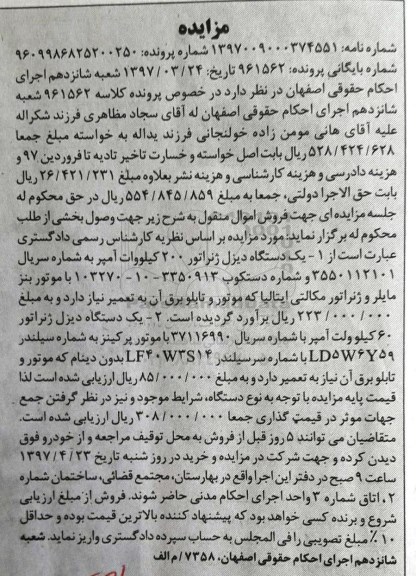 مزایده
شماره نامه: ۱۳۹۷۰۰۹۰۰۰۳۷۴۵۵۱ شماره پرونده: ۹۶۰۹۹۸۶۸۲۵۲۰۰۲۵۰
شماره بایگانی پرونده: ۹۶۱۵۶۲ تاریخ: ۱۳۹۷/۰۳/۲۴ شعبه شانزدهم اجرای
احکام حقوقی اصفهان در نظر دارد در خصوص پرونده کلاسه ۹۶۱۵۶۲ شعبه
شانزدهم اجرای احکام حقوقی اصفهان له آقای سجاد مظاهری فرزند شکراله
علیه آقای هانی مومن زاده خولنجانی فرزند یداله به خواسته مبلغ جمعا
۵۲۸/۴۲۴/۶۲۸ ریال بابت اصل خواسته و خسارت تاخیر تادیه تا فروردین ۹۷ و
هزینه دادرسی و هزینه کارشناسی و هزینه نشر بعلاوه مبلغ ۲۶/۴۲۱/۲۳۱ ریال
بابت حق الاجرا دولتی، جمعا به مبلغ ۵۵۴/۸۴۵/۸۵۹ ریال در حق محکوم له
جلسه مزایده ای جهت فروش اموال منقول به شرح زیر جهت وصول بخشی از طلب
محکوم له برگزار نماید. مورد مزایده بر اساس نظریه کارشناس رسمی دادگستری
عبارت است از ۱- یک دستگاه دیزل ژنراتور ۲۰۰ کیلووات آمپر به شماره سریال
۳۵۵۰۱۱۲۱۰۱ و شماره دستکوب ۳۳۵۰۹۱۳-۱۰-۱۰۳۲۷۰ با موتور بنز
مایلر و ژنراتور مکالتی ایتالیا که موتور و تابلو برق آن به تعمیر نیاز دارد و به مبلغ
۲۲۳/۰۰۰/۰۰۰ ریال برآورد گردیده است. ۲- یک دستگاه دیزل ژنراتور
۶۰ کیلو ولت آمپر با شماره سریال ۳۷۱۱۶۹۹۰ با موتور پرکینز به شماره سیلندر
LD۵W۶Y۵۹ با شماره سرسیلندر LF۴۰W۳S۱۴ بدون دینام که موتور و
تابلو برق آن نیاز به تعمیر دارد و به مبلغ ۸۵/۰۰۰/۰۰۰ ریال ارزیابی شده است لذا
قیمت پایه مزایده با توجه به نوع دستگاه، شرایط موجود و نیز در نظر گرفتن جمع
جهات موثر در قیمت گذاری جمعا ۳۰۸/۰۰۰/۰۰۰ ریال ارزیابی شده است.
متقاضیان می توانند ۵ روز قبل از فروش به محل توقیف مراجعه و از خودرو فوق
دیدن کرده و جهت شرکت در مزایده و خرید در روز شنبه تاریخ ۱۳۹۷/۴/۲۳
ساعت ۹ صبح در دفتر این اجرا واقع در بهارستان، مجتمع قضائی، ساختمان شماره
۲، اتاق شماره ۳ واحد اجرای احکام مدنی حاضر شوند. فروش از مبلغ ارزیابی
شروع و برنده کسی خواهد بود که پیشنهاد کننده بالاترین قیمت بوده و حداقل
۱۰٪ مبلغ تصویبی را فی المجلس به حساب سپرده دادگستری واریز نماید. شعبه
شانزدهم اجرای احکام حقوقی اصفهان. ۷۳۵۸/م الف